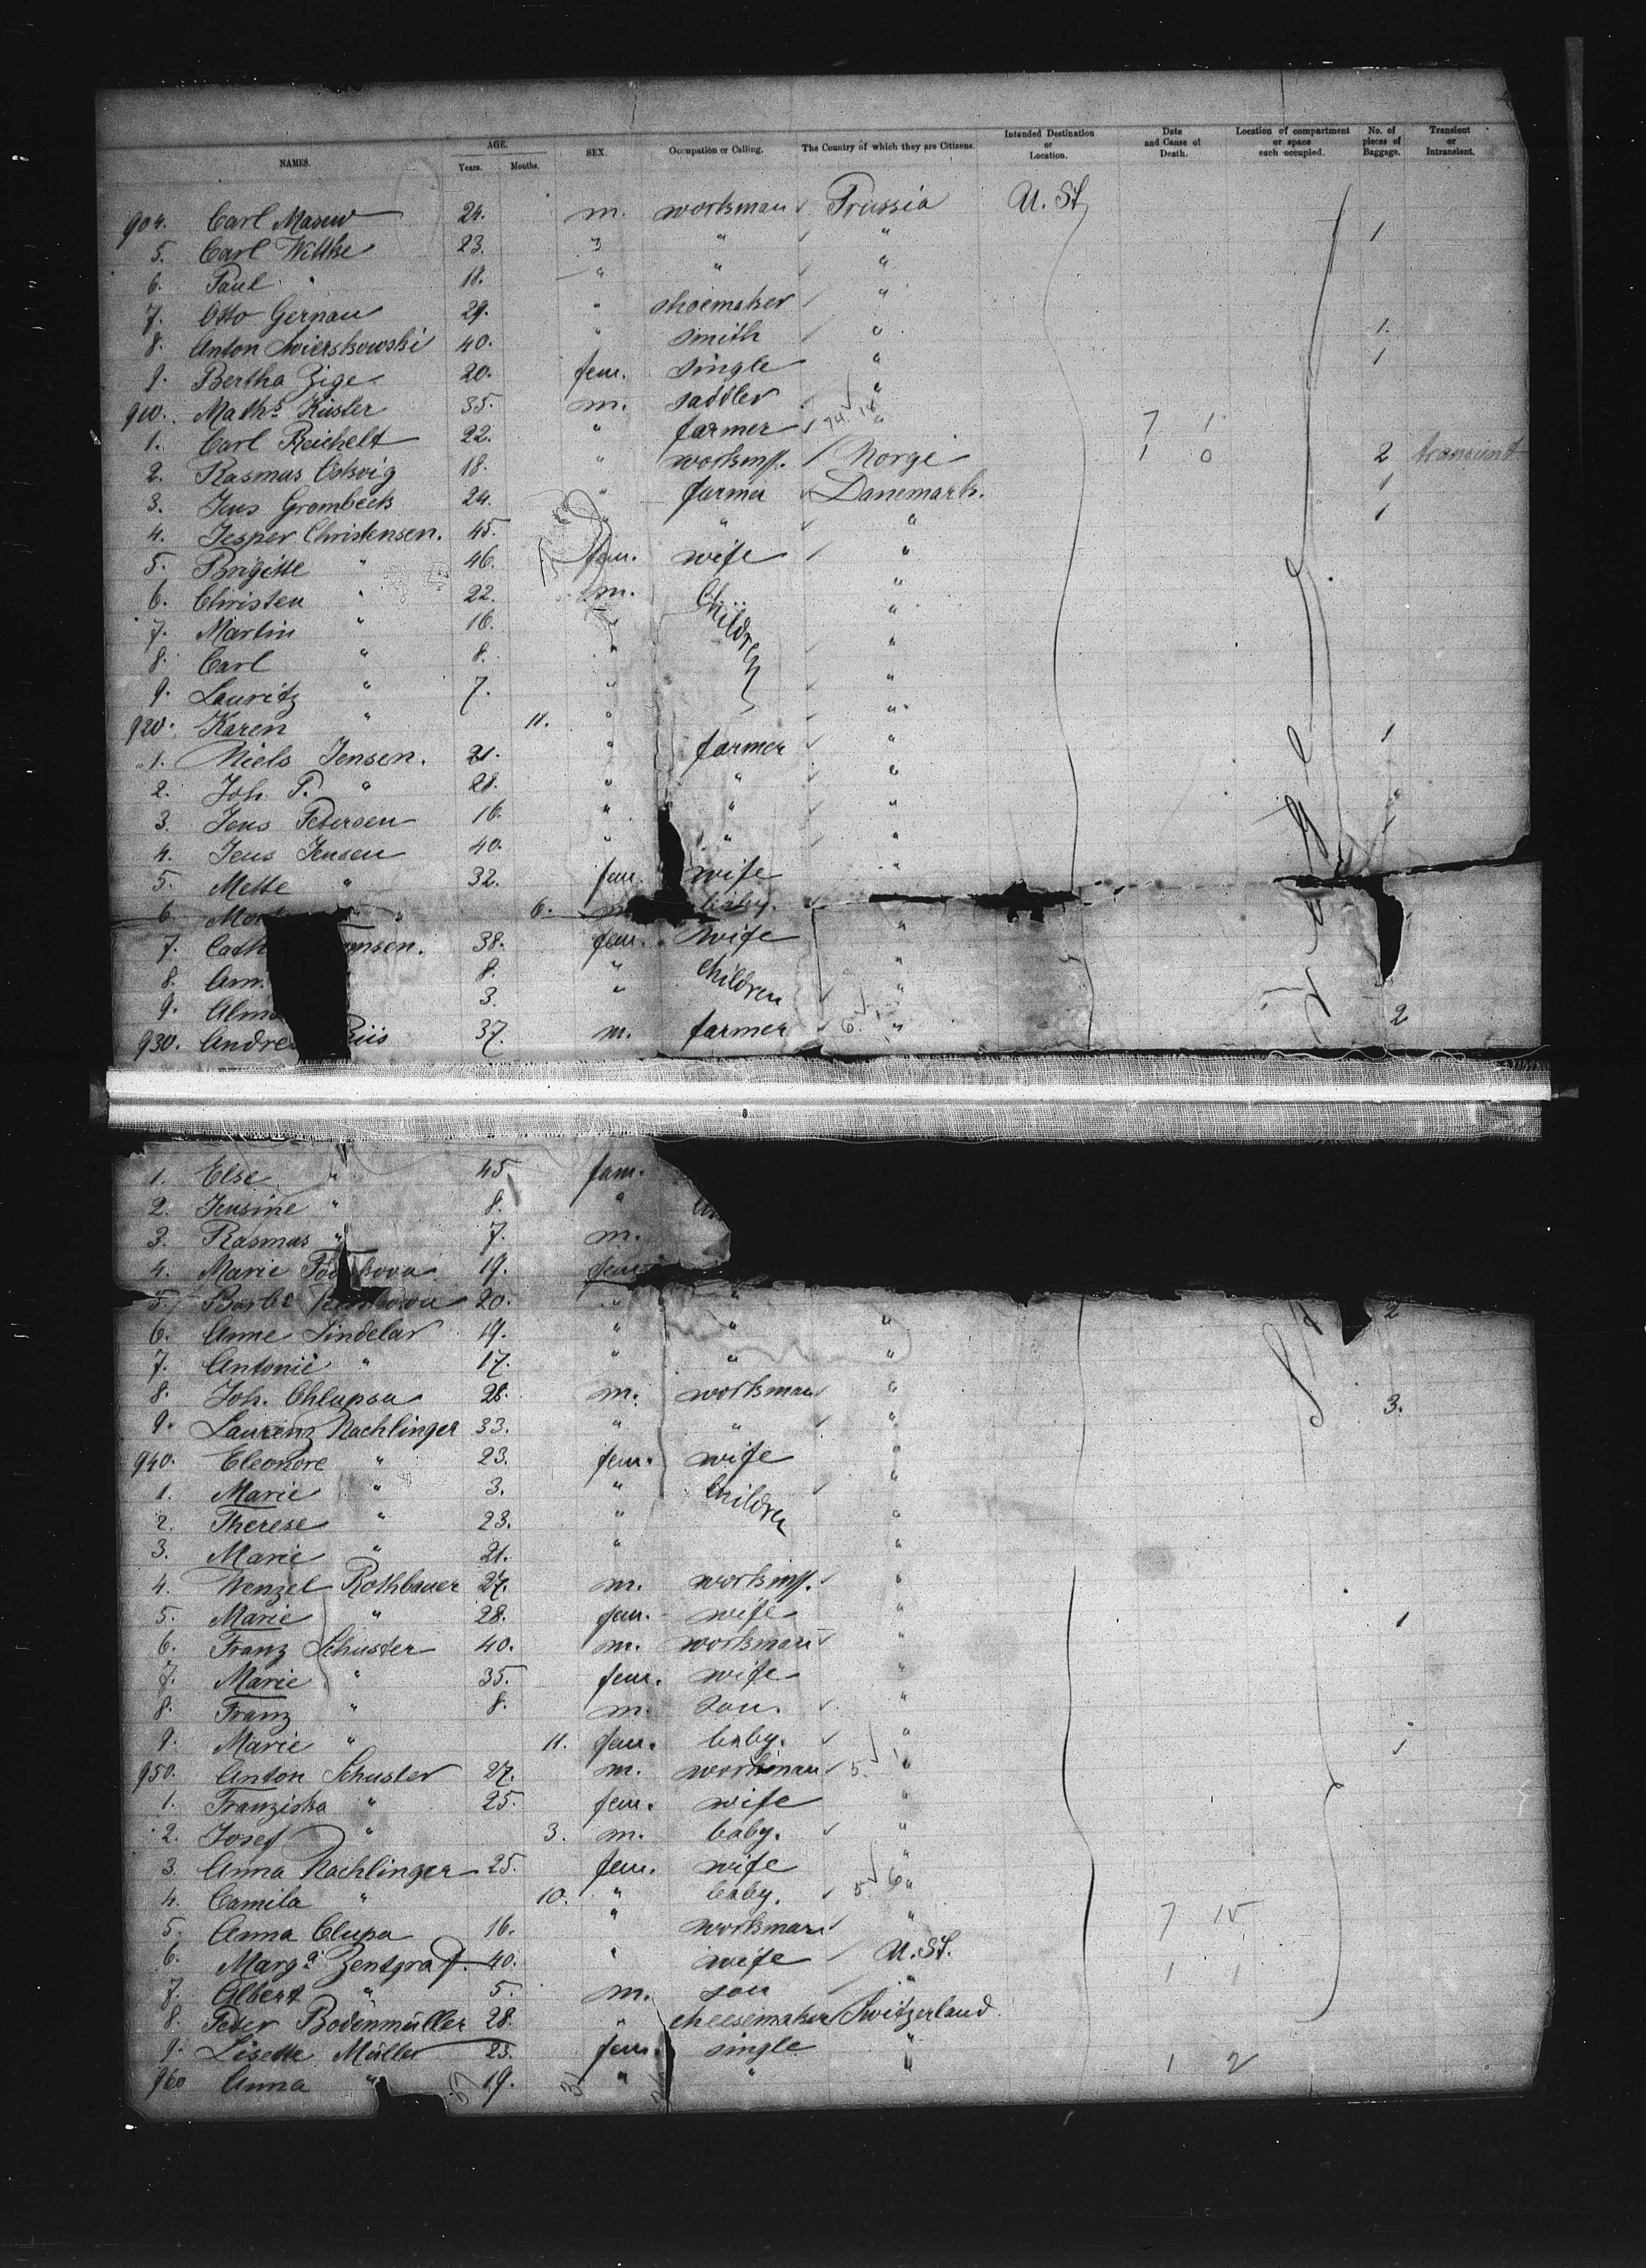 NAMES. AGE. Years. Months. SEX. Occupation or Calling. The Country of which they are Citizens. Intended Destination or Location. Date and Cause of Death. Location of compartment or space each occupied. No. of pieces of Baggage. Transient or Intransient.
904. Carl Masew 24. m. workman Prussia U. St.
5. Carl Wittke 23. " " " 1
6. Paul " 18. " " "
7. Otto Gernau 29. " shoemaker "
8. Anton Swierskowski 40. " smith " 1.
9. Bertha Zige 20. fem. single " 1
910. Maths Küster 35. m. saddler "
1. Carl Reichelt 22. " farmer " 7 1
2. Rasmus 18. " workm. Norge 1 0 2 transient
3. Jens Grombeck 24. " farmer Danemark. 1
4. Jesper Christensen. 45. " " " 1
5. Brigitte " 46. fem. wife "
6. Christen " 22. m. Children "
7. Martin " 16. " "
8. Carl " 8. " "
9. Lauritz " 7. " "
920. Karen " 11. " "
1. Niels Jensen. 21. " farmer " 1
2. Joh. P. " 28. " " "
3. Jens Petersen 16. " " " "
4. Jens Jensen 40. " " " 1
5. Mette " 32. fem. wife "
6. " 6. m. baby.
7. Cath ensen. 38. fem. wife "
8. 8. " Children "
9. 3. "
930. Andre Riis 37. m. farmer " 2
1. Else " 45 fem.
2. Jensine " 8. "
3. Rasmus " 7. m.
4. Marie 19. fem.
5. 20. " " 2
6. Anne Sindelar 19. " " "
7. Antonie " 17. " " "
8. Joh. Chlupsa 28. m. workman "
9. Laurenz Nachlinger 33. " " " 3.
940. Eleonore " 23. fem. wife "
1. Marie " 3. " Children "
2. Therese " 23. " "
3. Marie " 21. " "
4. Wenzel Rothbauer 27. m. workm. "
5. Marie " 28. fem. wife " 1
6. Franz Schuster 40. m. workman "
7. Marie " 35. fem. wife "
8. Franz " 8. m. son. "
9. Marie " 11. fem. baby. " 1
950. Anton Schuster 27. m. workman 5 "
1. Franziska " 25. fem. wife "
2. Josef " 3. m. baby. "
3. Anna Nachlinger 25. fem. wife "
4. Camila " 10. " baby. 5 6 "
5. Anna Clupa 16. " workman " 7 15
6. Marga Zentgraf. 40. " wife U. St.
7. Albert " 5. m. son " 1 1
8. Peter Bodenmüller 28. " cheesemaker Switzerland
9. Lisette Müller 23. fem. single "
960 Anna " 19. " " " 1 2